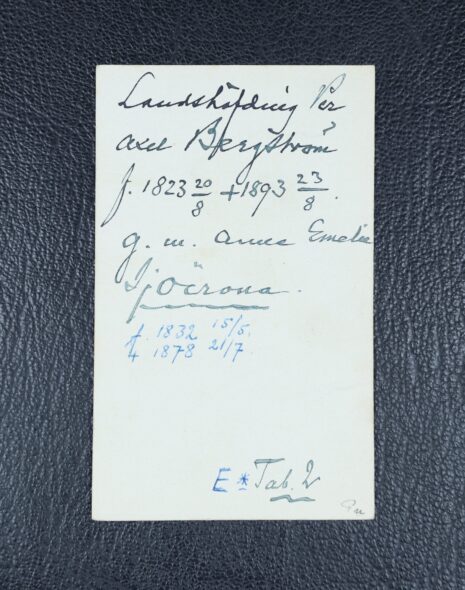 Landshöfding Per
Axel Bergström
f. 1823 20/8 +1893 23/8.
g. m. Anna Emelie
Sjöcrona.
f. 1832 15/5.
+ 1878 21/7
E * Tab. 2